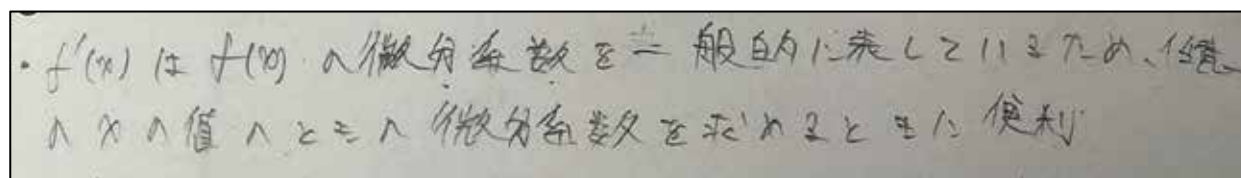 ・f'(x) は f(x) の微分係数を一般的に表しているため、任意
の x の値のときの微分係数を求めるときに便利